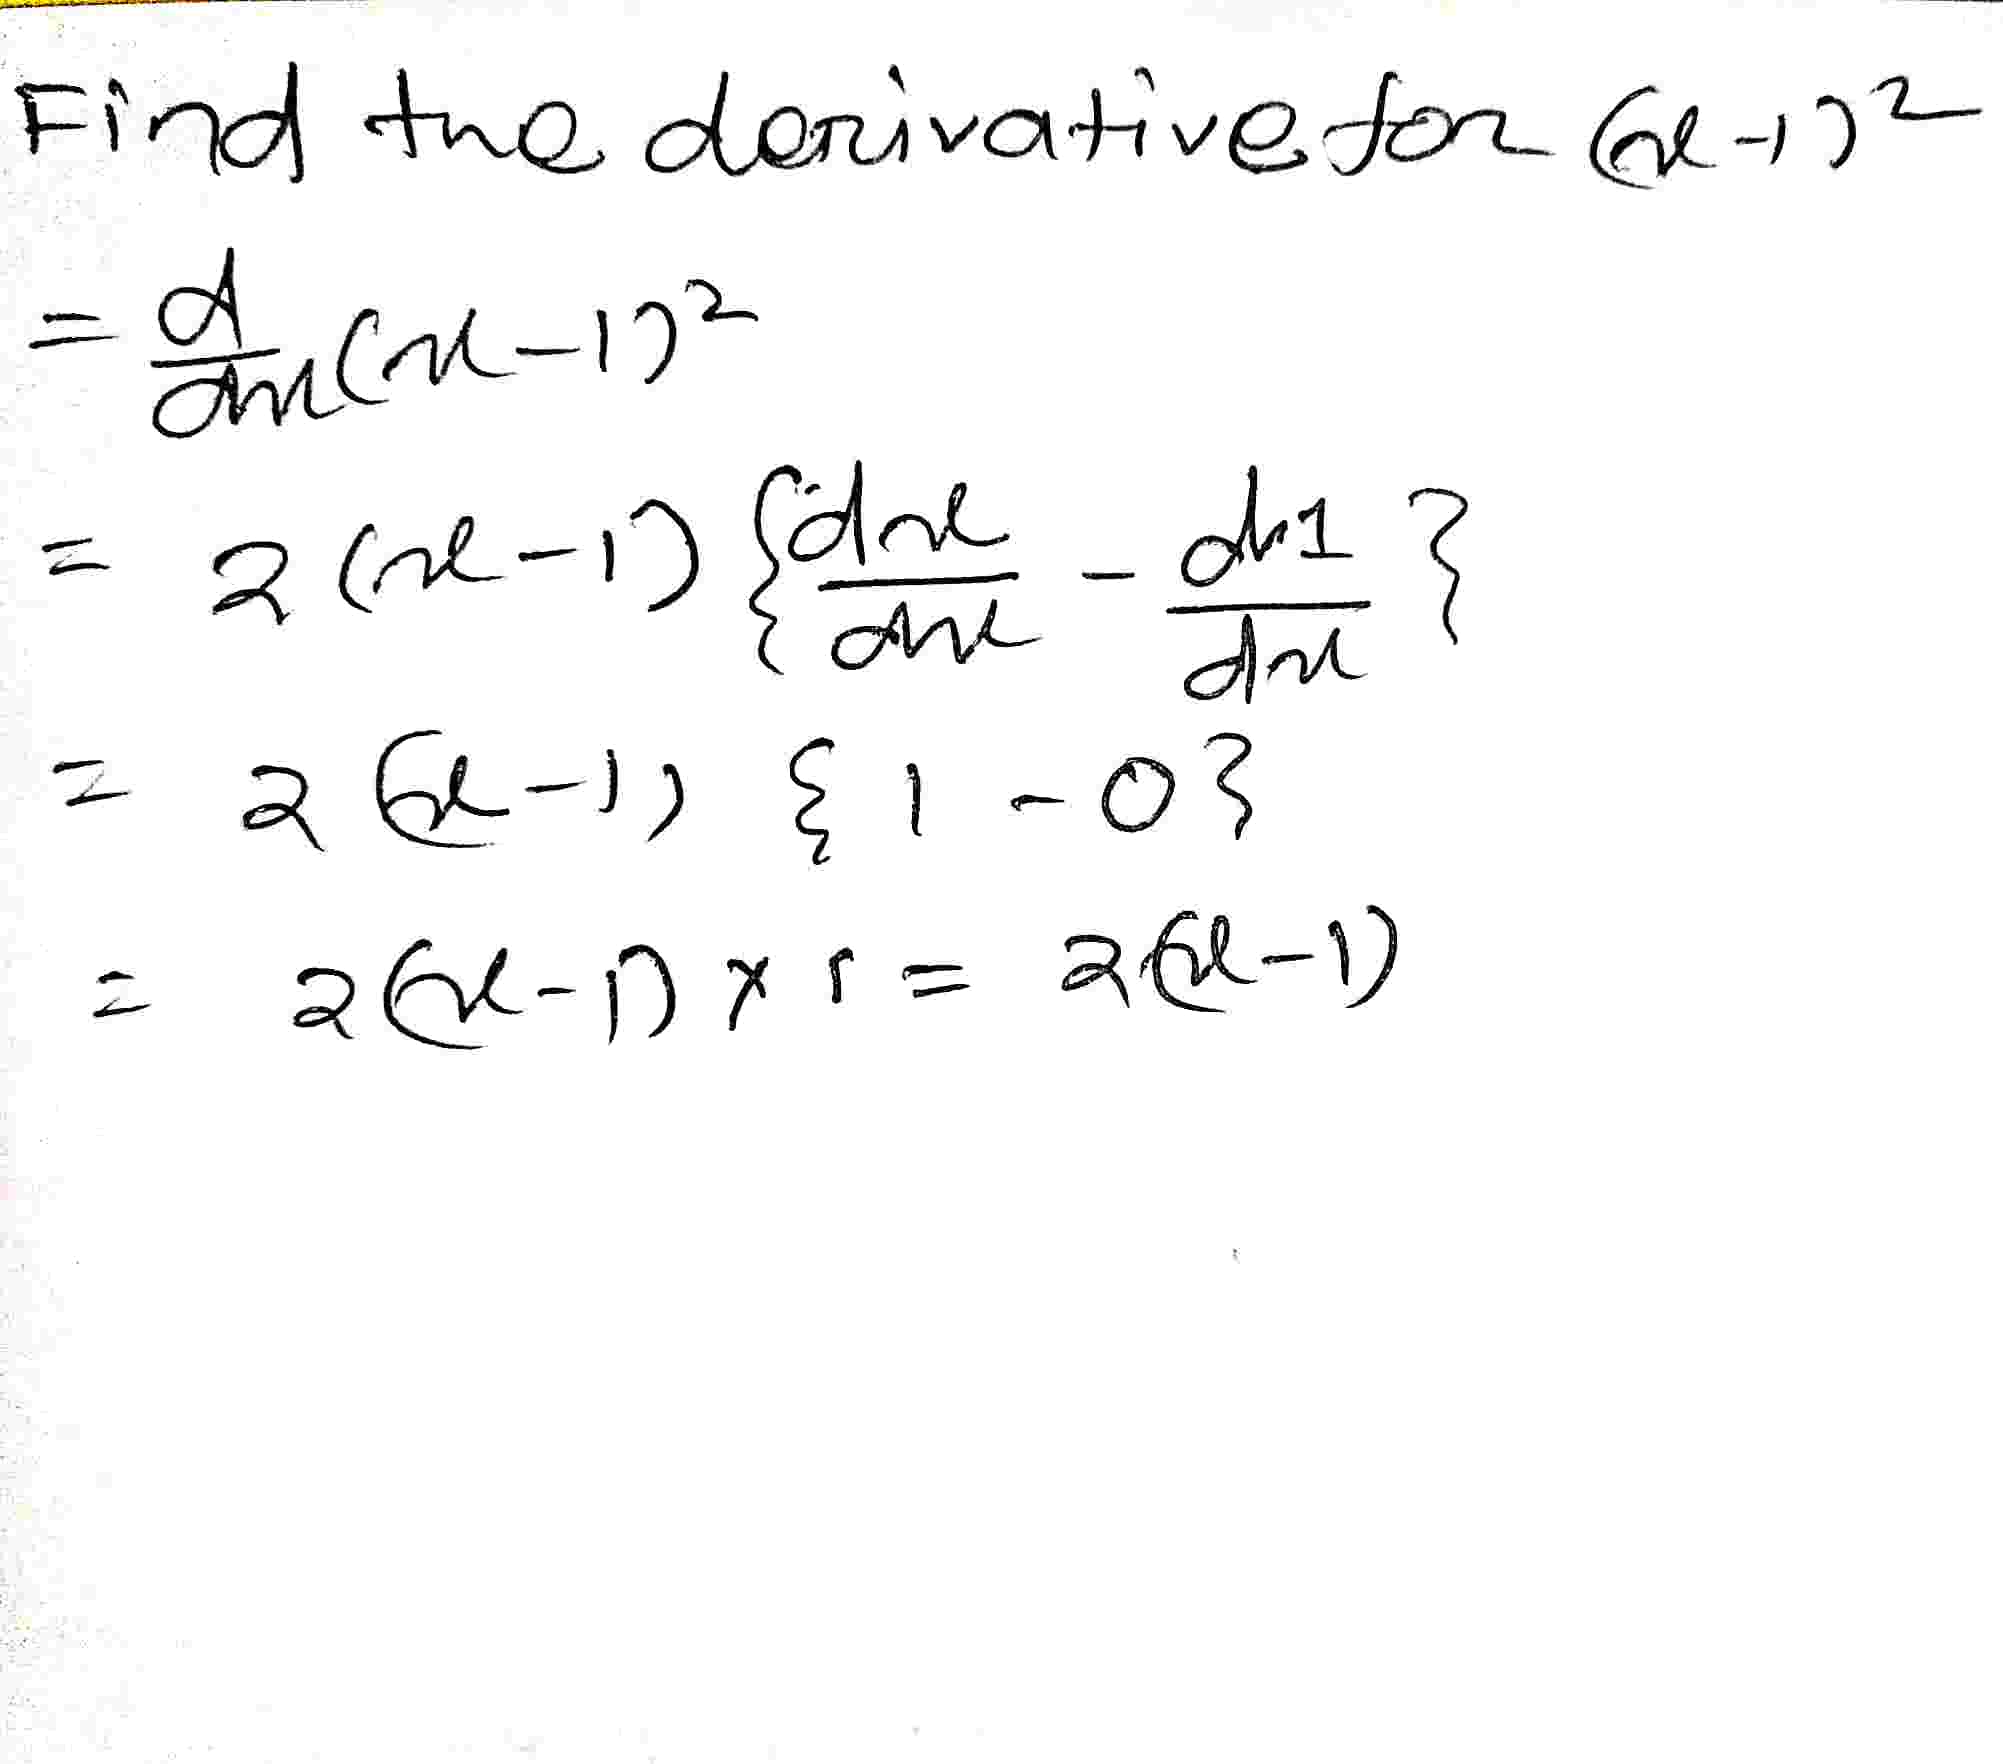 Find the derivative for (x-1)²
= d/dx (x-1)²
= 2(x-1) {dx/dx - d1/dx}
= 2(x-1) {1-0}
= 2(x-1) × 1 = 2(x-1)